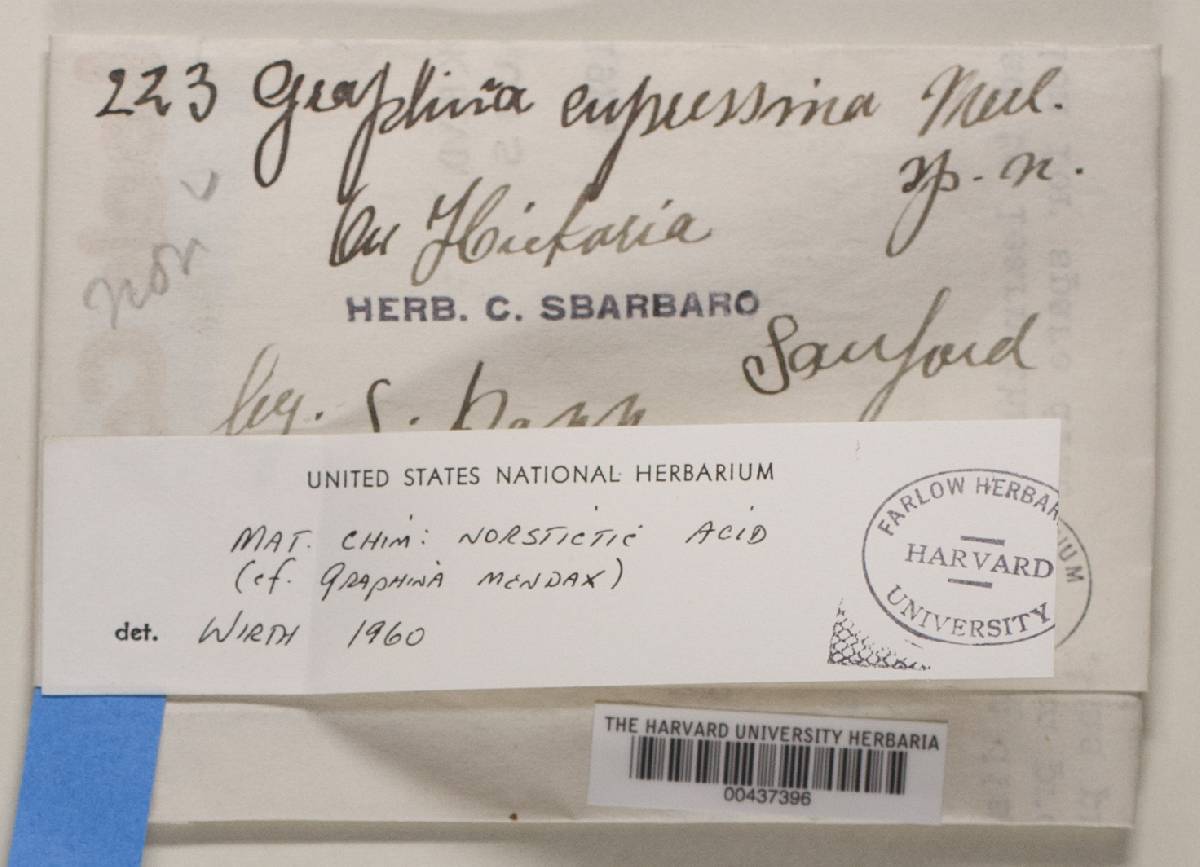 223 Graphina cupressina Müll.
sp. n.
On Hickoria
non
HERB. C. SBARBARO
Sanford
leg. S. Rapp
UNITED STATES NATIONAL HERBARIUM
MAT. CHIM: NORSTICTIC ACID
(cf. GRAPHINA MENDAX)
det. WIRTH 1960
FARLOW HERBARIUM
HARVARD
UNIVERSITY
THE HARVARD UNIVERSITY HERBARIA
00437396